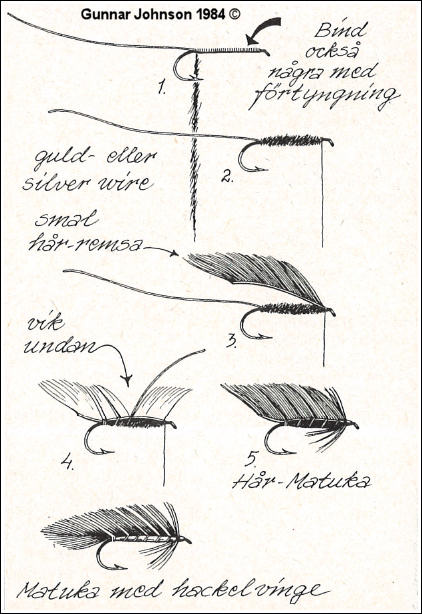 Gunnar Johnson 1984 ©
Bind
också
några med
förtyngning
1.
guld- eller
silver wire
2.
smal
hår-remsa
3.
vik
undan
4.
5.
Hår-Matuka
Matuka med hackelvinge